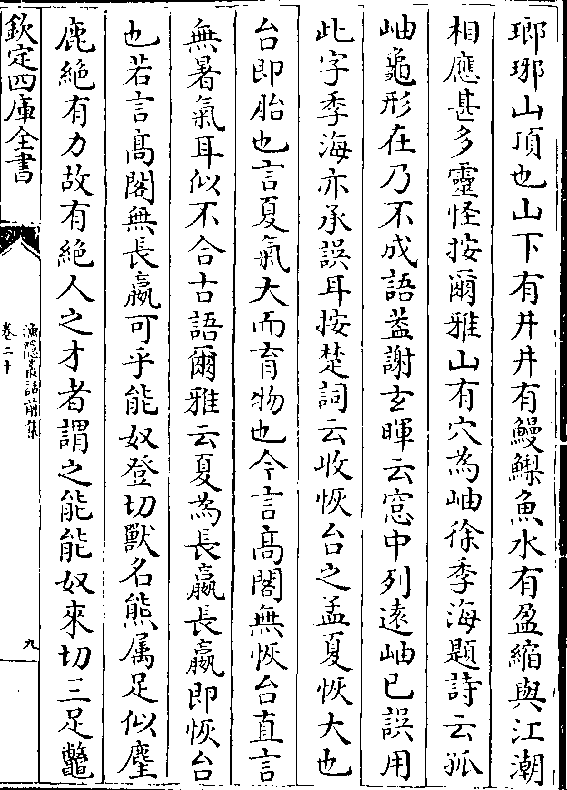 瑯琊山頂也山下有井井有鰻鱺魚水有盈縮與江潮
相應甚多靈怪按爾雅山有穴為岫徐季海題詩云孤
岫龜形在乃不成語葢謝玄暉云窓中列遠岫已誤用
此字季海亦承誤耳按楚詞云收恢台之孟夏恢大也
台即胎也言夏氣大而育物也今言髙閣無恢台直言
無暑氣耳似不合古語爾雅云夏為長嬴長嬴即恢台
也若言髙閣無長嬴可乎能奴登切獸名熊属足似麈
鹿絶有力故有絶人之才者謂之能能奴來切三足鼈
欽定四庫全書
漁隱叢話前集
卷二十
九